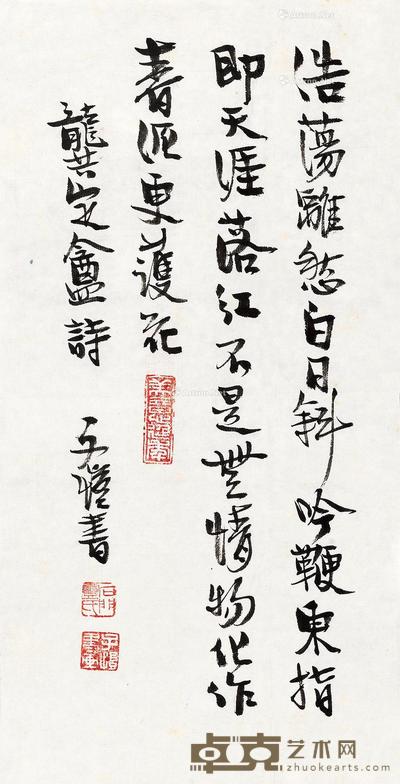 浩蕩離愁白日斜吟鞭東指
即天涯落红不是無情物化作
春泥更護花
龔定盦詩
子愷書
卓克艺术网
zhuokearts.com